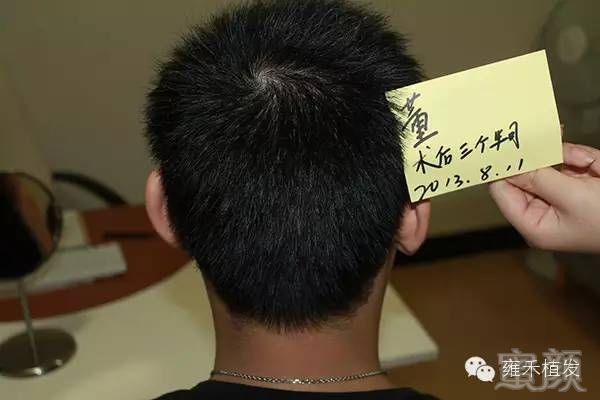 董
术后三个半月
2013.8.11
蜜颜
雍禾植发